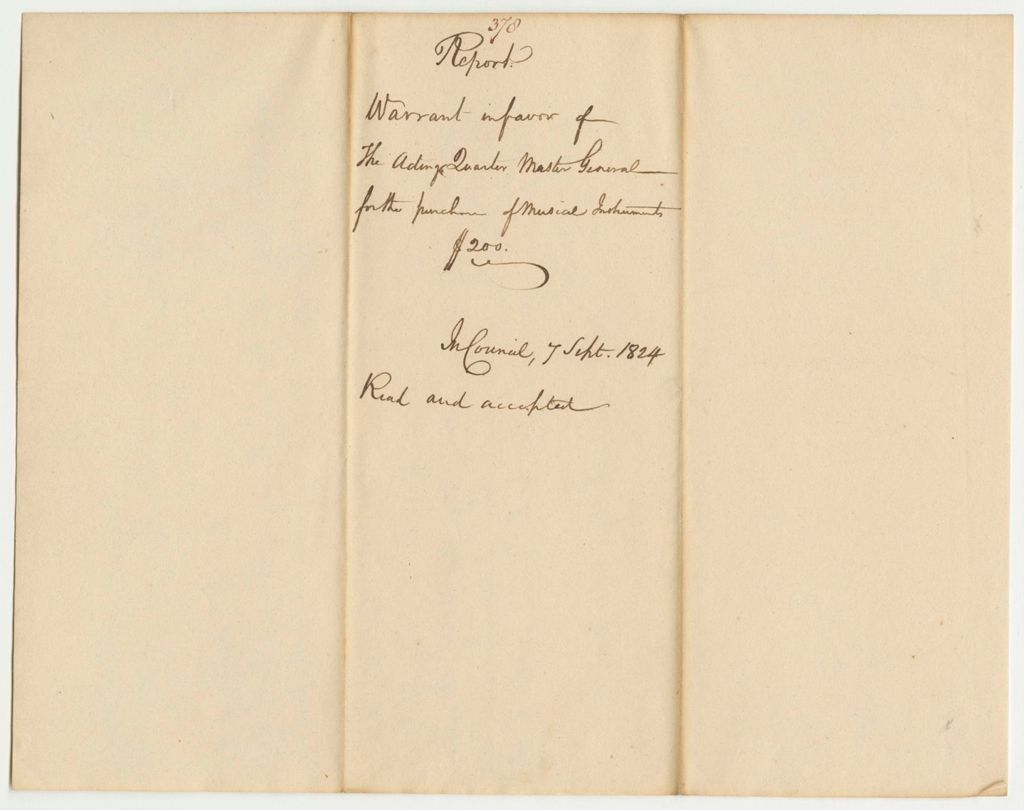 378
Report.
Warrant in favor of
The Acting Quarter Master General
for the purchase of Musical Instruments
$200.
In Council, 7 Sept. 1824
Read and accepted